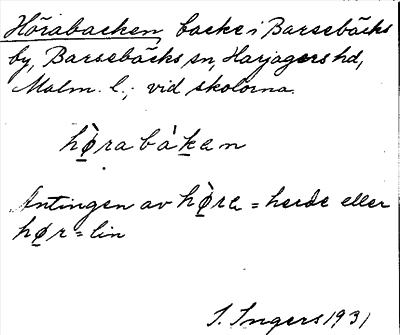 Hörabacken, backe i Barsebäcks
by, Barsebäcks sn, Harjagers hd,
Malm. l.; vid skolorna.
hø̀rabákan
Antingen av hø̀ra = herde eller
hør = lin
I. Ingers 1931